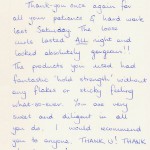 Thank-you once again for
all your patience & hard work
last Saturday. The loose
curls lasted All night and
looked absolutely gorgeous!!
The products you used had
fantastic 'hold strength' without
any flakes or sticky feeling
what-so-ever. You are very
sweet and diligent in all
you do. I would recommend
you to anyone. THANK U! THANK